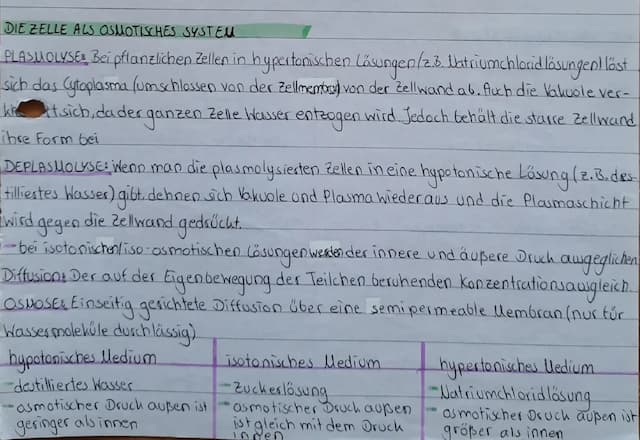 DIE ZELLE ALS OSMOTISCHES SYSTEM
PLASMOLYSE: Bei pflanzlichen Zellen in hypertonischen Lösungen (z.B. Natriumchloridlösungen) löst
sich das Cytoplasma (umschlossen von der Zellmembran) von der Zellwand ab. Auch die Vakuole ver-
sich, da der ganzen Zelle Wasser entzogen wird. Jedoch behält die starre Zellwand
ihre Form bei
DEPLASMOLYSE: Wenn man die plasmolysierten Zellen in eine hypotonische Lösung (z.B. des-
tilliertes Wasser) gibt, dehnen sich Vakuole und Plasma wieder aus und die Plasmaschicht
wird gegen die Zellwand gedrückt.
- bei isotonischen/iso-osmotischen Lösungen werden der innere und äußere Druck ausgeglichen
Diffusion: Der auf der Eigenbewegung der Teilchen beruhenden Konzentrationsausgleich
OSMOSE: Einseitig gerichtete Diffusion über eine semipermeable Membran (nur für
Wassermoleküle durchlässig)
hypotonisches Medium isotonisches Medium hypertonisches Medium
- destilliertes Wasser - Zuckerlösung - Natriumchloridlösung
- osmotischer Druck außen ist - osmotischer Druck außen - osmotischer Druck außen ist
geringer als innen ist gleich mit dem Druck größer als innen
innen